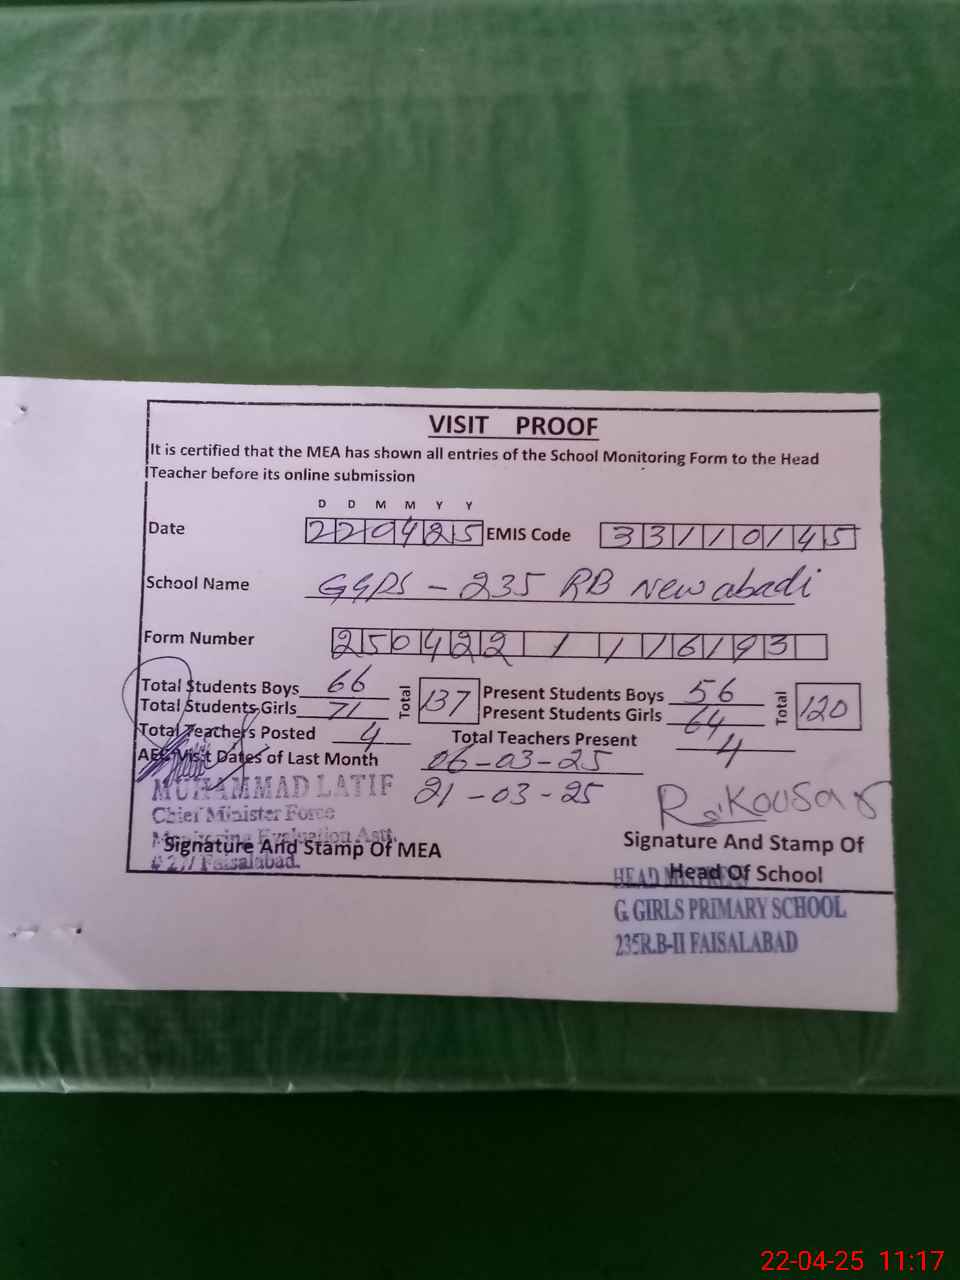 VISIT PROOF
It is certified that the MEA has shown all entries of the School Monitoring Form to the Head
Teacher before its online submission
D D M M Y Y
Date 220425 EMIS Code 33110145
School Name GGPS - 235 RB New abadi
Form Number 250422 1 1 16193
Total Students Boys 66 Total 137 Present Students Boys 56 Total 120
Total Students Girls 71 Present Students Girls 64
Total Teachers Posted 4 Total Teachers Present 4
AEO Visit Dates of Last Month 06-03-25
21-03-25
MUHAMMAD LATIF
Chief Minister Force
Monitoring Evaluation Astt.
Faisalabad.
Signature And Stamp Of MEA
R. Kousar
Signature And Stamp Of
Head Of School
HEAD MISTRESS
G. GIRLS PRIMARY SCHOOL
235R.B-II FAISALABAD
22-04-25 11:17